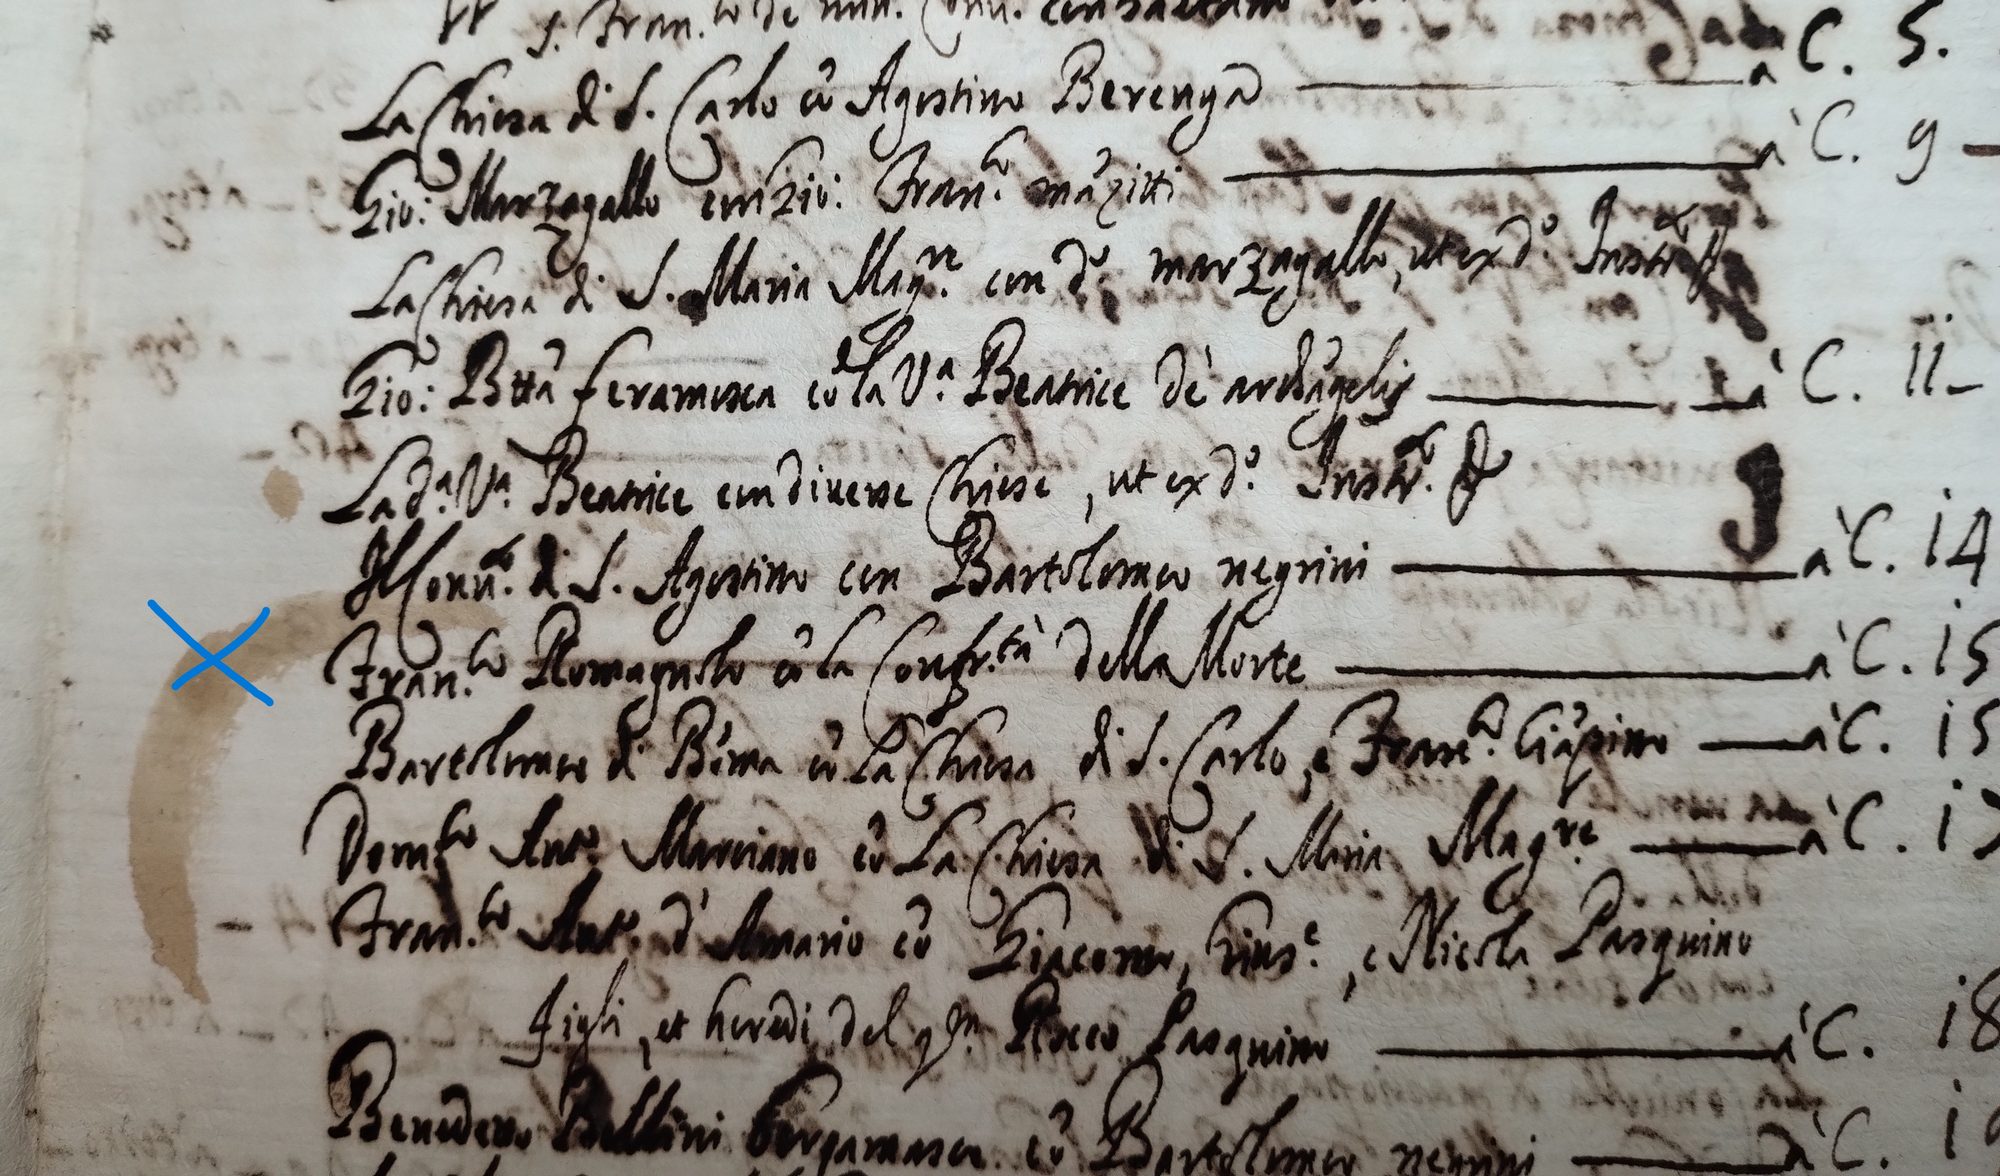 S. Fran.co de min. Conu. con Gaetano
La Chiesa di S. Carlo cō Agostino Berengā à C. 5.
Gio: Marzagallo con Gio: Fran.co māzitti à C. 9
La Chiesa di S. Maria Mag.re con d.o marzagallo, ut ex d.o Instr.o
Gio: Bttā feramosca cō la V.a Beatrice de archāgelis à C. 11
La d.a V.a Beatrice con diuerse Chiese, ut ex d.o Instr.o
Il Conu.to di S. Agostino con Bartolomeo negrini à C. 14
Fran.co Romagnolo cō la Confr.tà della Morte à C. 15
Bartolomeo di Bōma cō la Chiesa di S. Carlo, e Franc.o Ciāpino à C. 15
Dom.co Ant.o Marciano cō La Chiesa di S. Maria Mag.re à C. 17
Fran.co Ant.o d'Amario cō Giacomo, Gius.e, e Nicola Pasquino
figli, et heredi del qm. Rocco Pasquino à C. 18
Benedetto Bellini bergamasco cō Bartolomeo negrini à C.